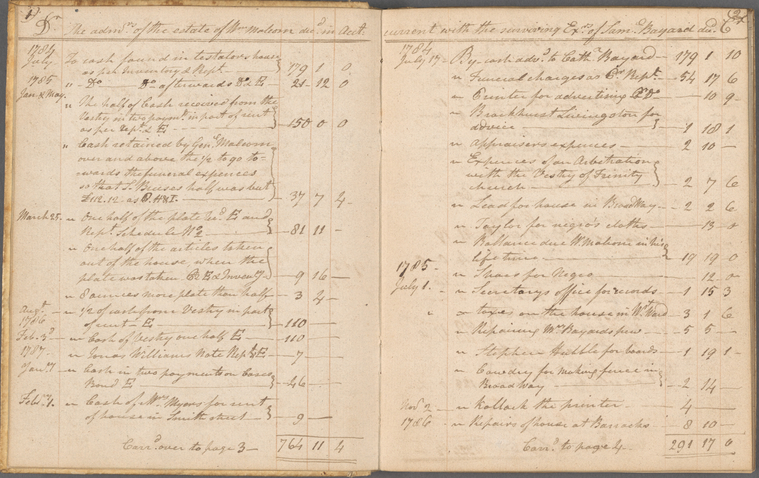 Dr. The admrs of the estate of Wm Malcom decd in Acct
1784
July To cash found in testators house
as per Inventory & Rept. 179 1 0
" Do Do afterwards E & E 21 12 0
1785
Jan & May. " The half of Cash received from the
Vestry in two paymts in part of rent
as per Rept & E 150 0 0
" Cash retained by Genl Malcom
over and above the ½ to go to-
wards the funeral expences
so that S. Bruses half was but
£112.12 as 37 7 4
March 25. " One half of the plate
Rept Schedule No 2 81 11 -
" One half of the articles taken
out of the house when the
plate was taken E & Inventy 9 16 -
" 8 ounces more plate then half 3 4 -
Augt " ½ of cash from Vestry in part
1786 of rent E 110 - -
Feb. 3d " Cash of Vestry one half E 110 - -
1787 " Jonas Williams Note Rept & E 7 - -
Jany 7 " Cash in two payments on Cases
Bond E 46 - -
Feby 1. " Cash of Mrs Myers for rent
of house in Smith street 9 - -
Carrd over to page 3 764 11 4
current with the surviving Exrs of Saml Bayard decd Cr
1784
July 17 By cash advd to Cathe Bayard 179 1 10
" Funeral charges as Rept 54 17 6
" Printer for advertising Do 10 9
" Brockhurst Livingston for
advice 1 18 1
" Appraisers expences 2 10 -
" Expences of an Arbitration
with the Vestry of Trinity
church 2 7 6
" Lead for house in Broadway 2 2 6
" Taylor for negro's cloths 13
" Ballance due W. Malcom in his
lifetime 19 19 0
1785 " Shoes for Negro 12 0
July 1. " Secretarys office for records 1 15 3
" " taxes on the house in Wt Ward 3 1 6
" Repairing Mrs Bayards pew 5 5 -
" Stephen Hubble for boards 1 19 1
" Cowdry for making fence in
Broadway 2 14 -
Novr 2 " Kollock the printer 4 - -
1786 " Repairs of house at Barracks 8 10 -
Carrd to page 4 291 17 0